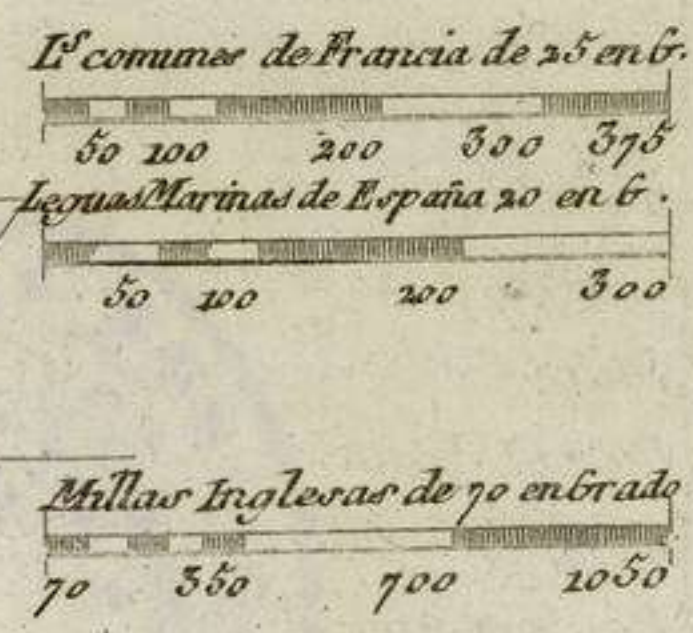 L.s comunes de Francia de 25 en G.
50 100 200 300 375
Leguas Marinas de España 20 en G.
50 100 200 300
Millas Inglesas de 70 en Grado
70 350 700 1050